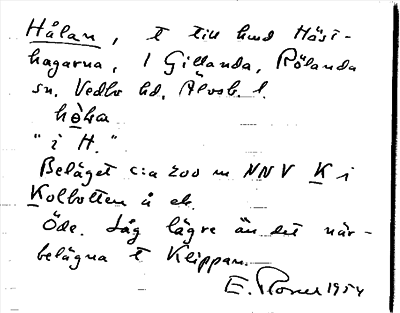 Hålan, t till hmd Häst-
hagarna, 1 Gillanda, Rölanda
sn. Vedbo hd. Älvsb. l.
hὲha
"i H."
Beläget c:a 200 m NNV K i
Kolbotten å ek.
Öde. Låg lägre än det när-
belägna t Klippan.
E. 1954